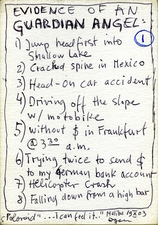 EVIDENCE OF AN
GUARDIAN ANGEL:
1
1) Jump head first into
Shallow Lake
2) Cracked spine in Mexico
3) Head-On car accident
4) Driving off the slope
w/ motobike
5) Without $ in Frankfurt
@ 3:30 a.m.
6) Trying twice to send $
to my German bank account
7) Helicopter Crash
8) Falling down from a high bar
(Polaroid" ...I can feel it.." Malibu